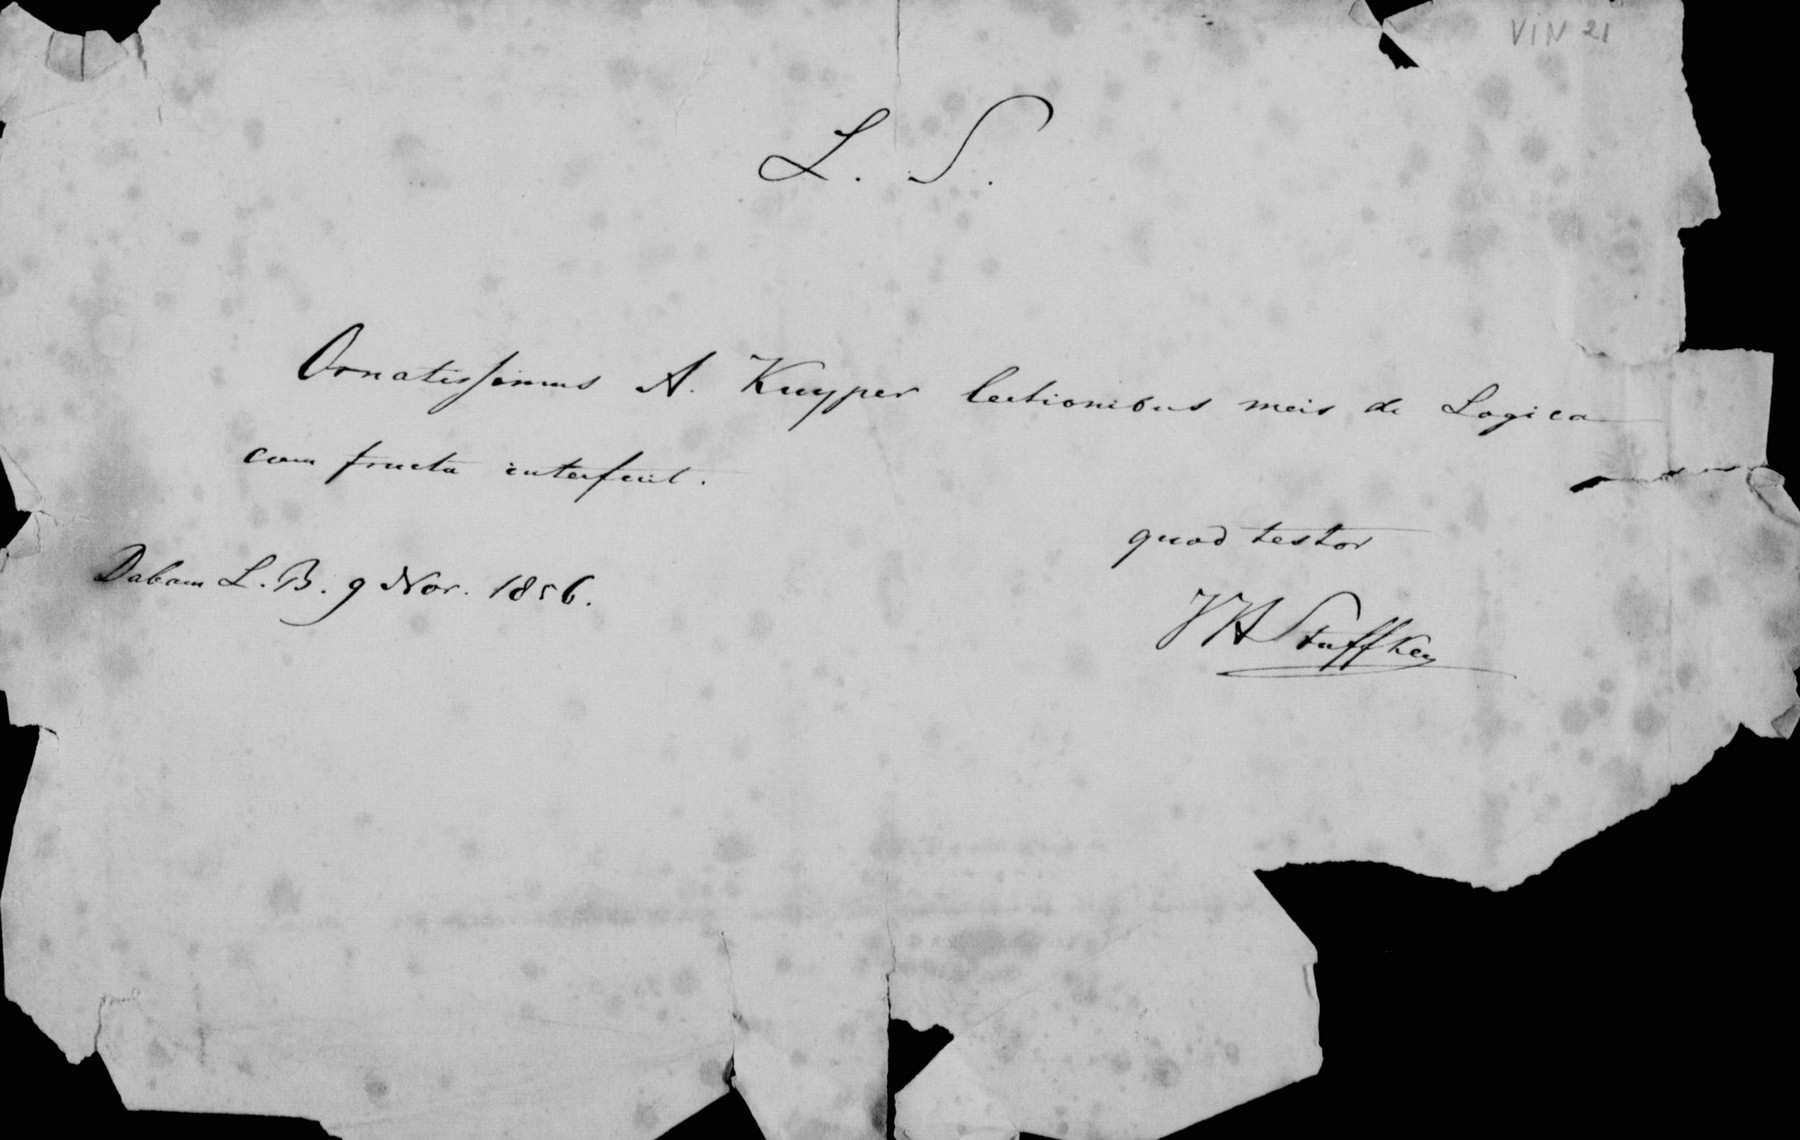 VIN 21
L. S.
Ornatissimus A. Kuyper lectionibus meis de Logica
cum fructu interfuit.
quod testor
Dabam L. B. 9 Nov. 1856.
JHStuffken